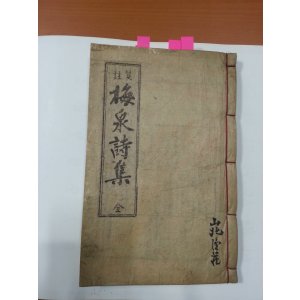 箋註
梅泉詩集
全